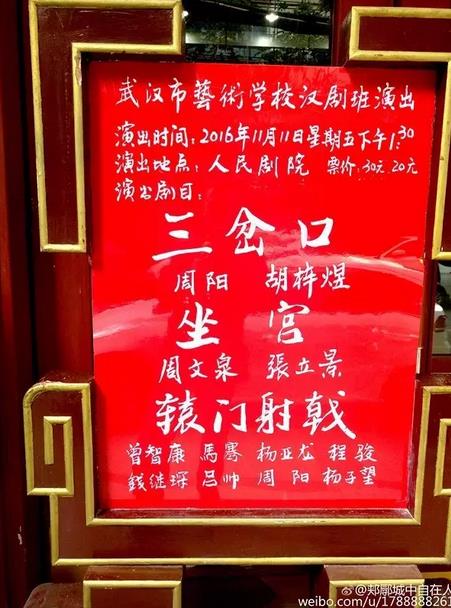 武汉市藝術学校汉剧班演出
演出时间：2016年11月11日星期五下午1:30
演出地点：人民剧院 票价：30元 20元
演出剧目：
三岔口
周阳 胡梓煜
坐宫
周文泉 張立景
辕门射戟
曾智康 馬骞 杨亚龙 程骏
钱继琛 吕帅 周阳 杨子望
@郏鄏城中自在人
weibo.com/u/1788888261